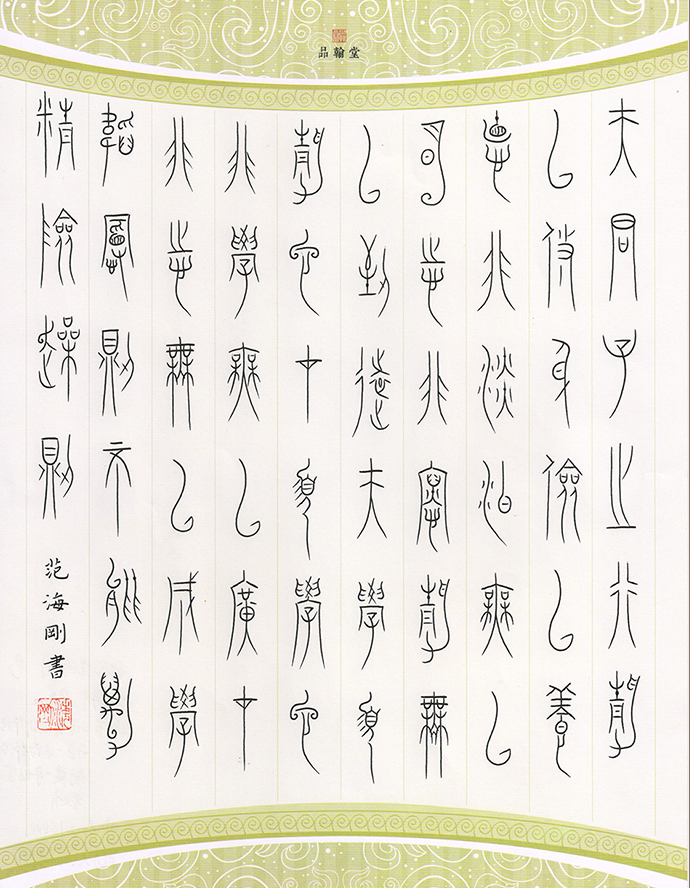 品翰堂
夫君子之行靜
以修身儉以養
德非澹泊無以
明志非寧靜無
以致遠夫學須
靜也才須學也
非學無以廣才
非志無以成學
韜慢則不能勵
精險躁則
范海剛書